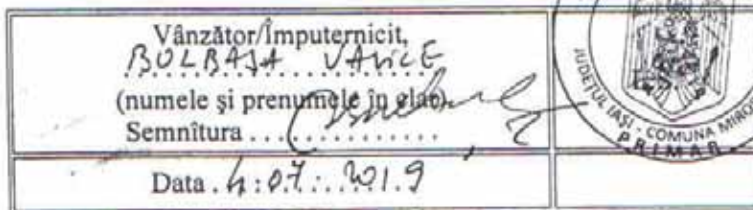 Vânzător/Împuternicit,
BOLBAȘA VASILE
(numele și prenumele în clar)
Semnîtura . . . . . . . . . . . . . . .
Data . 4 : 07 . : . 2019
JUDEȚUL IAȘI - COMUNA MIRO
PRIMAR